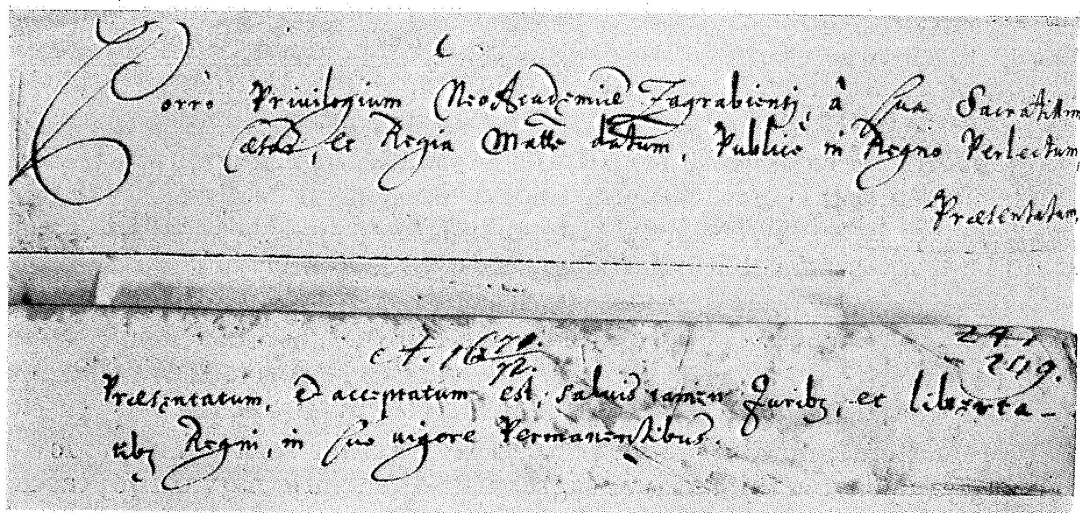 Porrò Priuilegium NeoAcademiæ Zagrabiensj, à sua Sacratissim
et Regia Matte datum, Publicè in Regno Perlectum,
Præsentatum,
A. 1670.
72.
247
249.
Præsentatum, & acceptatum est, saluis tamen Juribz, et liberta-
tibz Regni, in suo uigore Permanentibus.